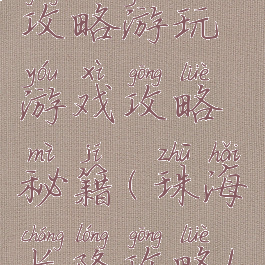 攻略游玩
yóu xì gōng lüè
游戏攻略
mì jí zhū hǎi
秘籍(珠海
cháng lóng gōng lüè
长隆攻略